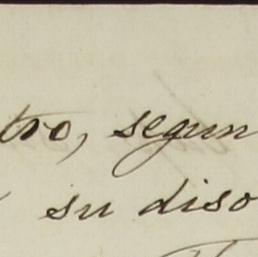 tro, segun
su diso